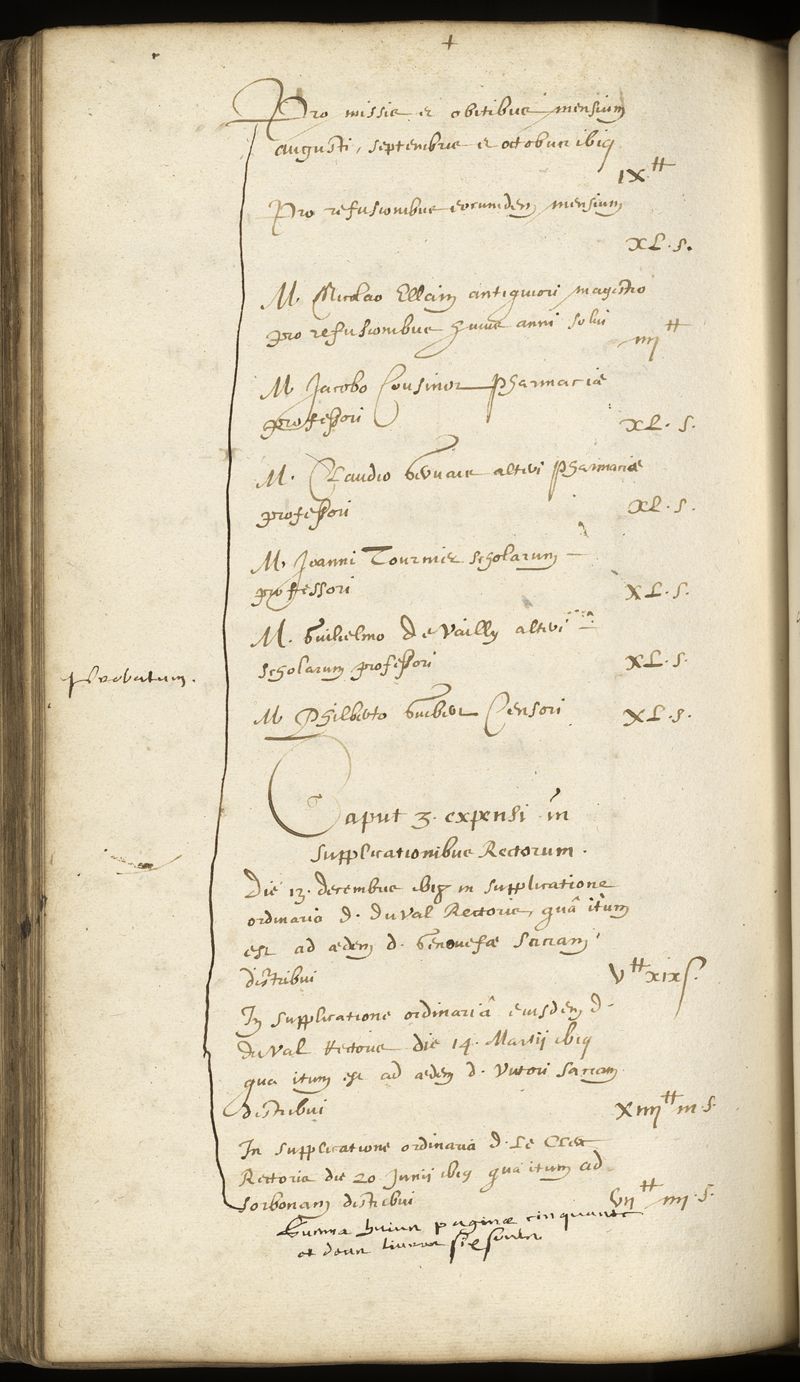 +
Pro missis et obitibus mensium
augusti, septembris et octobris 1619
IX ₶
Pro refusionibus eorumdem mensium
XL. s.
M. Nicolao Ellain antiquiori magistro
pro refusionibus huius anni solvi
IIII ₶
M Jacobo Cousinot Pharmaciæ
professori
XL. s.
M. Claudio Gervais alteri Pharmaciæ
professori
XL. s.
M. Joanni Tournier scholarum
professori
XL. s.
M. Guilielmo De Vailly alteri
scholarum professori
XL. s.
Probatum.
M Philberto Guibert Censori
XL. s.
Caput 3. expensi in
supplicationibus Rectorum.
Die 13. decembris 1618 in supplicatione
ordinaria d. duVal Rectoris, quâ itum
est ad ædem d. Genovefæ sacram
distribui
V ₶ XIX s.
In supplicatione ordinariâ eiusdem d.
duVal Rectoris die 14. Martii 1619
qua itum est ad ædem d. Victori sacram
distribui
XIIII ₶ III s.
In supplicatione ordinaria d. Le Clerc
Rectoris die 20 Junii 1619 qua itum ad
Sorbonam distribui
VII ₶ IIII s.
Summa huius paginæ cinquante
et deux livres six soulz